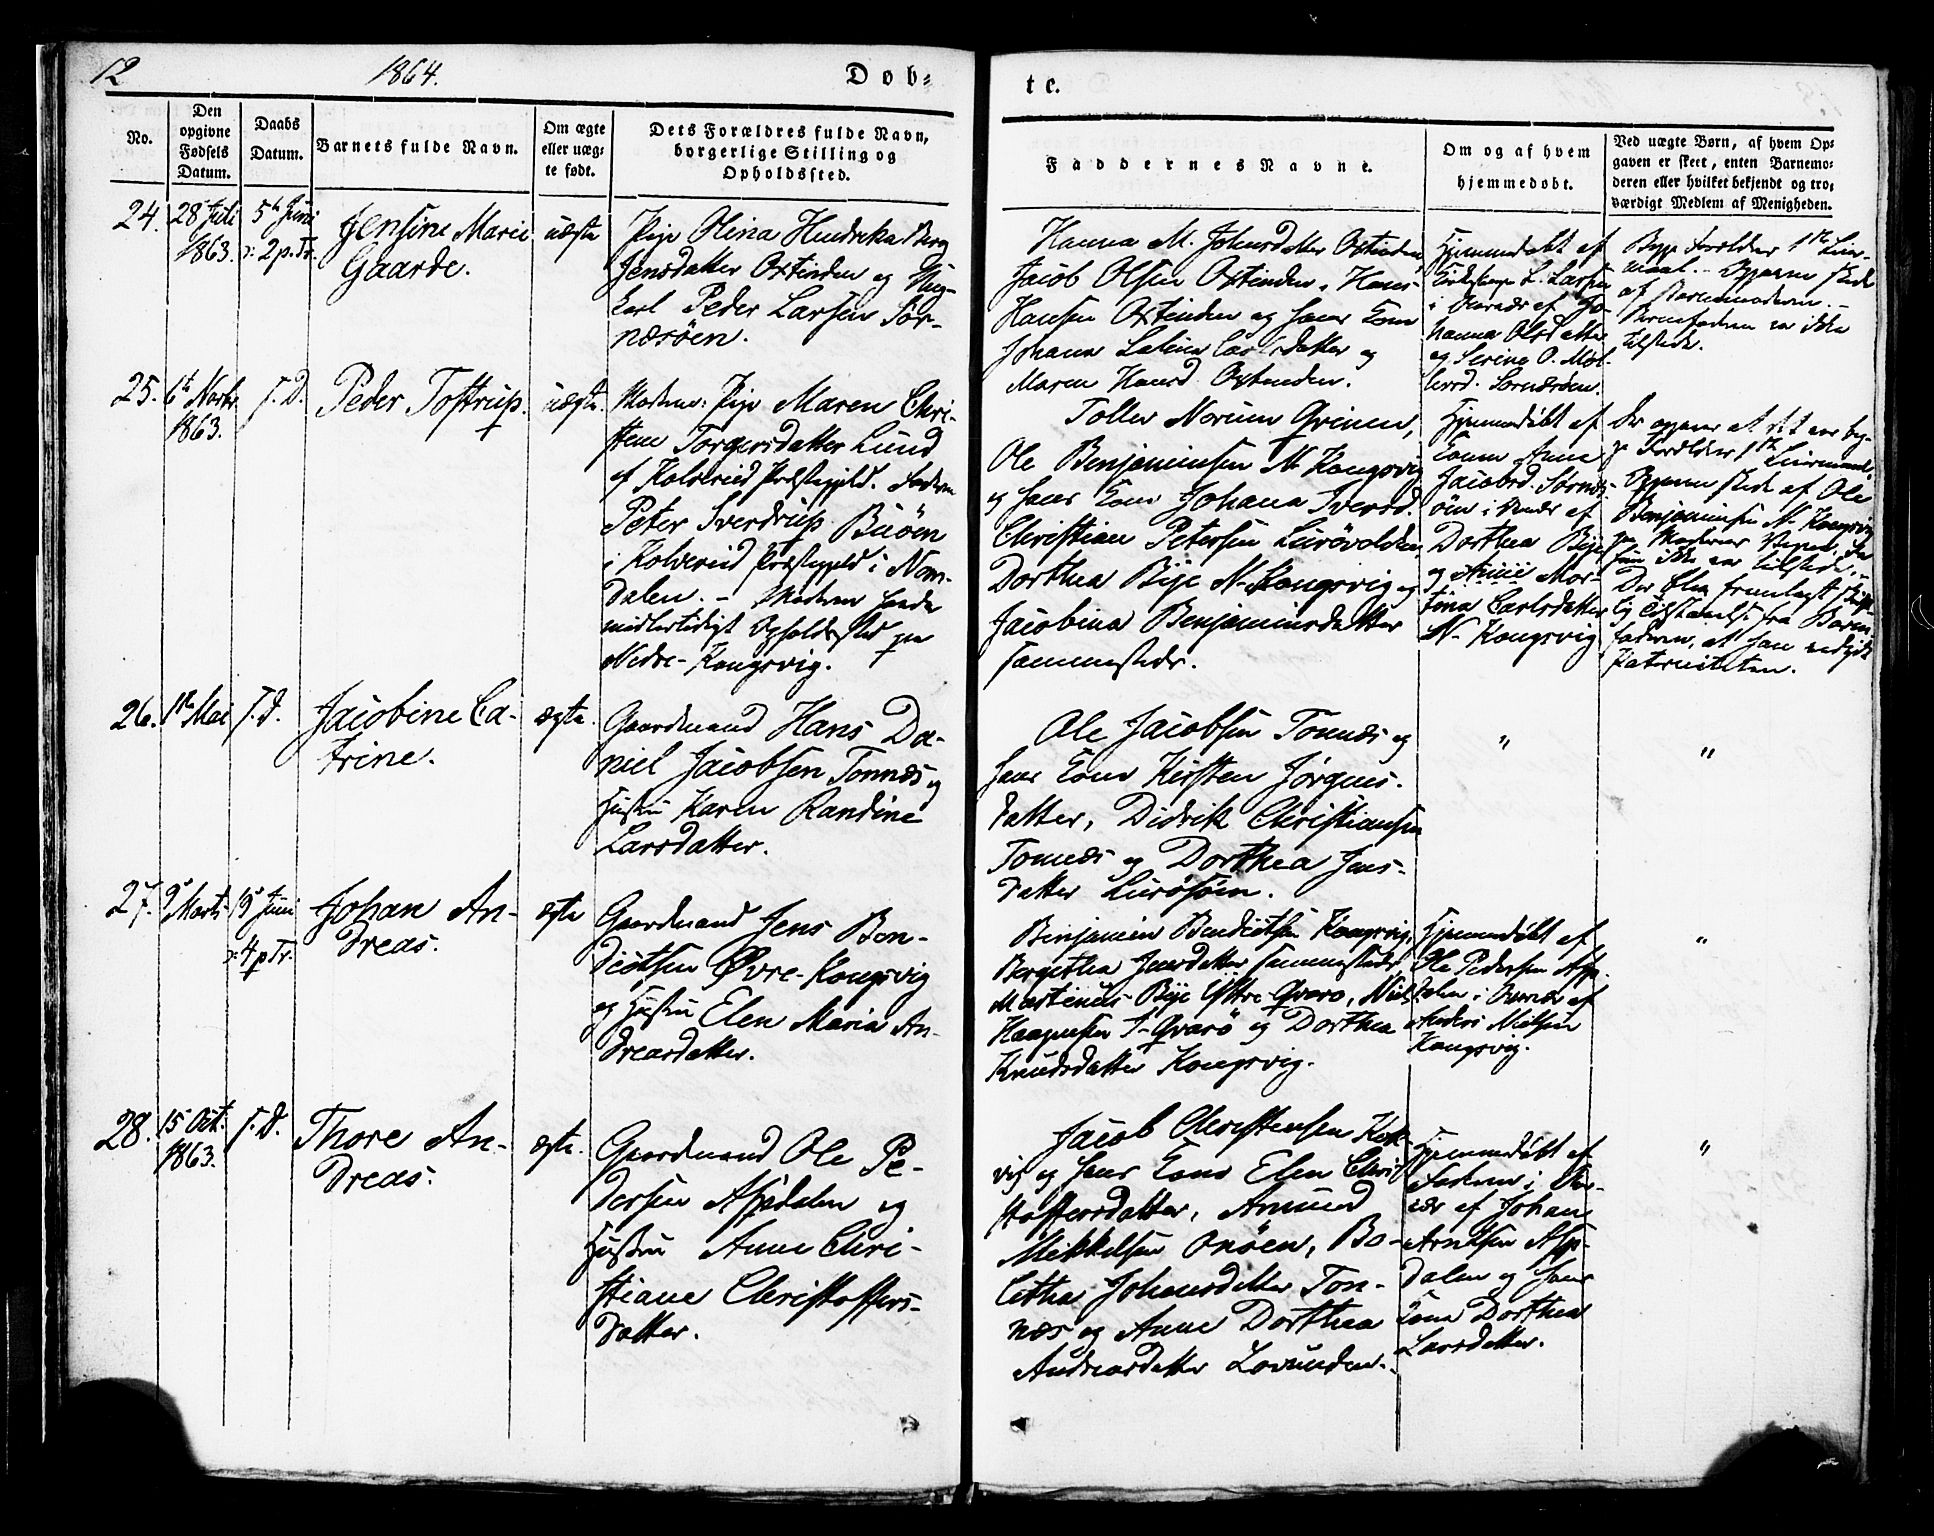 12
1864.
Døb-
te.
No.
Den
opgivne
Fødsels
Datum.
Daabs
Datum.
Barnets fulde Navn.
Om ægte
eller uæg-
te født.
Dets Forældres fulde Navn,
borgerlige Stilling og
Opholdssted.
Faddernes Navne.
Om og af hvem
hjemmedøbt.
Ved uægte Børn, af hvem Op-
gaven er skeet, enten Barnemo-
deren eller hvilket bekjendt og tro-
værdigt Medlem af Menigheden.
24.
28 Juli
1863.
5te Juni
2 p. Tr.
Jensine Marie
Gaarde.
uægte
Pige Olina Hendrika Berg
Jensdatter Oxtinden og Ung-
karl Peder Larsen Sør-
næsøen.
Hanna M. Johnsdatter Oxtinden,
Jacob Olsen Oxtinden, Hans
Hansen Oxtinden og hans Kone
Johana Lalina datter og
Maren Hansd. Oxtinden.
Hjemmedøbt af
Kirkesanger L. Larsen
i Overvær af Jo-
hanna Olsdatter
og Serine O. Møl-
lersd. Sornæsøen.
Begge Forældres 1ste Leier-
maal. - Opgaven skede
af Barnemoderen. -
Barnefaderen var ikke
tilstede.
25.
6te Novbr
1863.
s. D.
Peder Tostrup.
uægte.
Moderen: Pige Maren Chri-
stine Torgersdatter Lund
af Kolvereid Præstegjeld. Faderen
Peter Sverdrup Buöen
i Kolvereid Præstegjeld i Nam-
dalen. - Moderen havde
midlertidigt Opholdssted paa
Nedre-Kongsvig.
Toller Norum Grinen,
Ole Benjaminsen N. Kongsvig
og hans Kone Johana Iversd.
Christian Petersen Lurövolden
Dorthea Bije N. Kongsvig og
Jacobina Benjaminsdatter
sammesteds.
Hjemmedøbt af
Konen Anne
Jacobsd. Sörnæs-
öen i Overvær af
Dorthea Bije
og Anne Mar-
tina Carlsdatter
N. Kongsvig.
Der opgaves at det var beg-
ge Forældres 1ste Leiermaal.
Opgaven skede af Ole
Benjaminsen N. Kongsvig
paa Moderens Vegne, da
hun ikke var tilstede. -
Der blev fremlagt Skrift-
lig Tilstaaelse fra Barne-
faderen, at han vedgik
Paterniteten.
26.
1ste Mai
s. D.
Jacobine Ca-
trine.
ægte.
Gaardmand Hans Da-
niel Jacobsen Tonnæs og
Hustru Karen Randine
Larsdatter.
Ole Jacobsen Tonnæs og
hans Kone Kirsten Jörgens-
datter, Didrik Christiansen
Tonnæs og Dorthea Jens-
datter Lurösöen.
"
"
27.
9de Marts
19de Juni
4 p Tr.
Johan An-
dreas.
ægte
Gaardmand Jens Ben-
dictsen Øvre-Kongsvig
og Hustru Elen Maria An-
dreasdatter.
Benjamin Bendictsen Kongsvig,
Bergitha Jensdatter sammesteds,
Martinus Bije Yttre-Qvarø, Niels
Haagensen I-Qvarö og Dorthea
Knudsdatter Kongsvig.
Hjemmedøbt af
Ole Pedersen Asp-
dalen i Overvær af
Anders Nielsen
Kongsvig.
"
28.
15 Oct.
1863.
s. D.
Thore An-
dreas.
ægte.
Gaardmand Ole Pe-
dersen Aspdalen og
Hustru Anne Chri-
stiane Christoffers-
datter.
Jacob Christensen Kok-
vig og hans Kone Elen Chris-
toffersdatter, Amund
Mikkelsen Onöen, Bo-
letha Johansdatter Ton-
næs og Anne Dorthea
Andreasdatter Lovunden.
Hjemmedøbt af
Faderen i Over-
vær af Johan
Arntsen Asp-
dalen og hans
Kone Dorthea
Larsdatter.
"